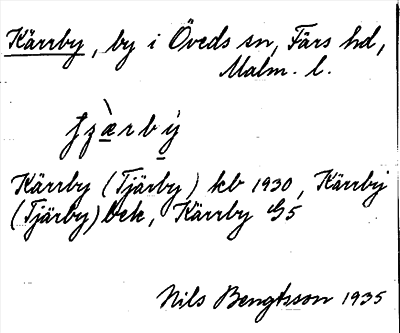 Kärrby, by i Öveds sn, Färs hd,
Malm. l.
Kärrby (Tjärby) kb 1930, Kärrby
(Tjärby) bek, Kärrby GS
Nils Bengtsson 1935